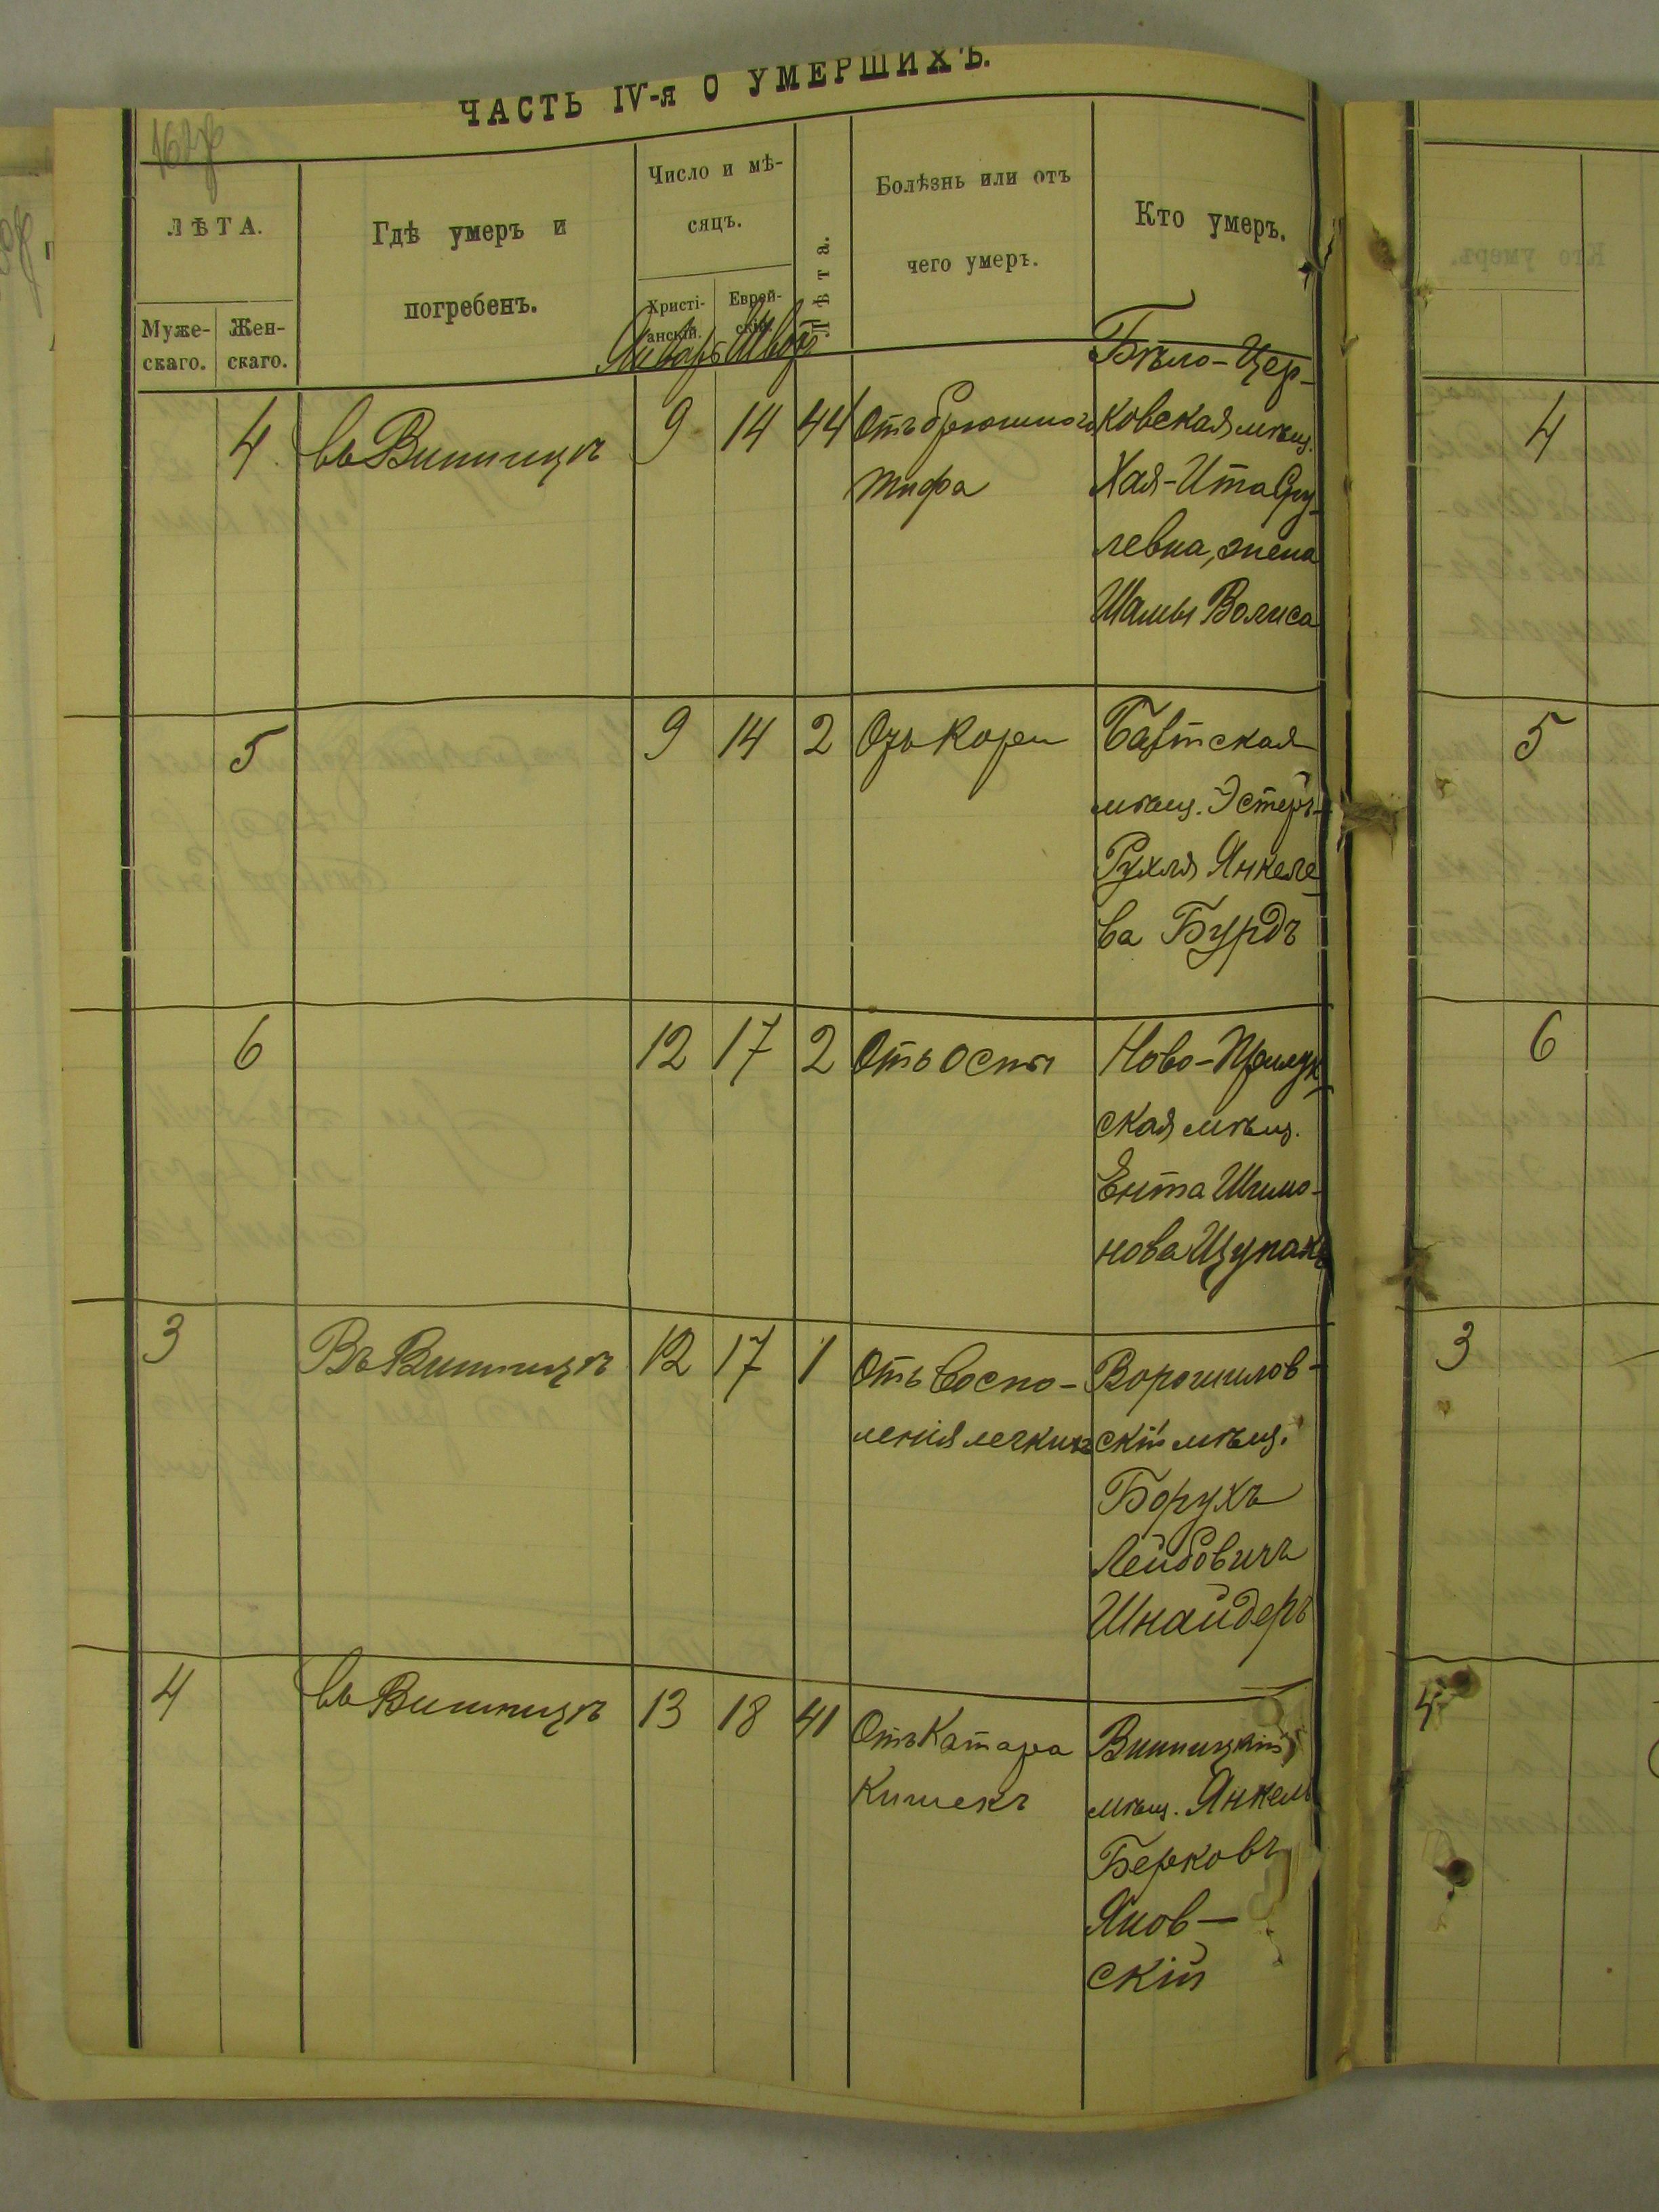 ЧАСТЬ IV-я О УМЕРШИХЪ.
ЛѢТА.
Муже-
скаго.
Жен-
скаго.
Гдѣ умеръ и
погребенъ.
Число и мѣ-
сяцъ.
Христі-
анскій.
Еврей-
скій.
Январь Шватъ
Лѣта.
Болѣзнь или отъ
чего умеръ.
Кто умеръ.
4 въ Винницѣ 9 14 44 Отъ брюшного
тифа
Бѣло-Цер-
ковская мѣщ.
Хая-Ита Сру-
левна, жена
Шамы Волиса
5 9 14 2 Отъ Кори
Балтская
мѣщ. Эстеръ-
Рухля Янкеле-
ва Бурдъ
6 12 17 2 Отъ оспы
Ново-Прилук-
ская мѣщ.
Ента Шимо-
нова Щупакъ
3 Въ Винницѣ 12 17 1 Отъ воспо-
ленія легкихъ
Ворошилов-
скій мѣщ.
Борухъ
Лейбовичъ
Шнайдеръ
4 въ Винницѣ 13 18 41 Отъ Катара
Кишекъ
Винницкій
мѣщ. Янкель
Берковъ
Янов-
скій
4
5
6
3
4